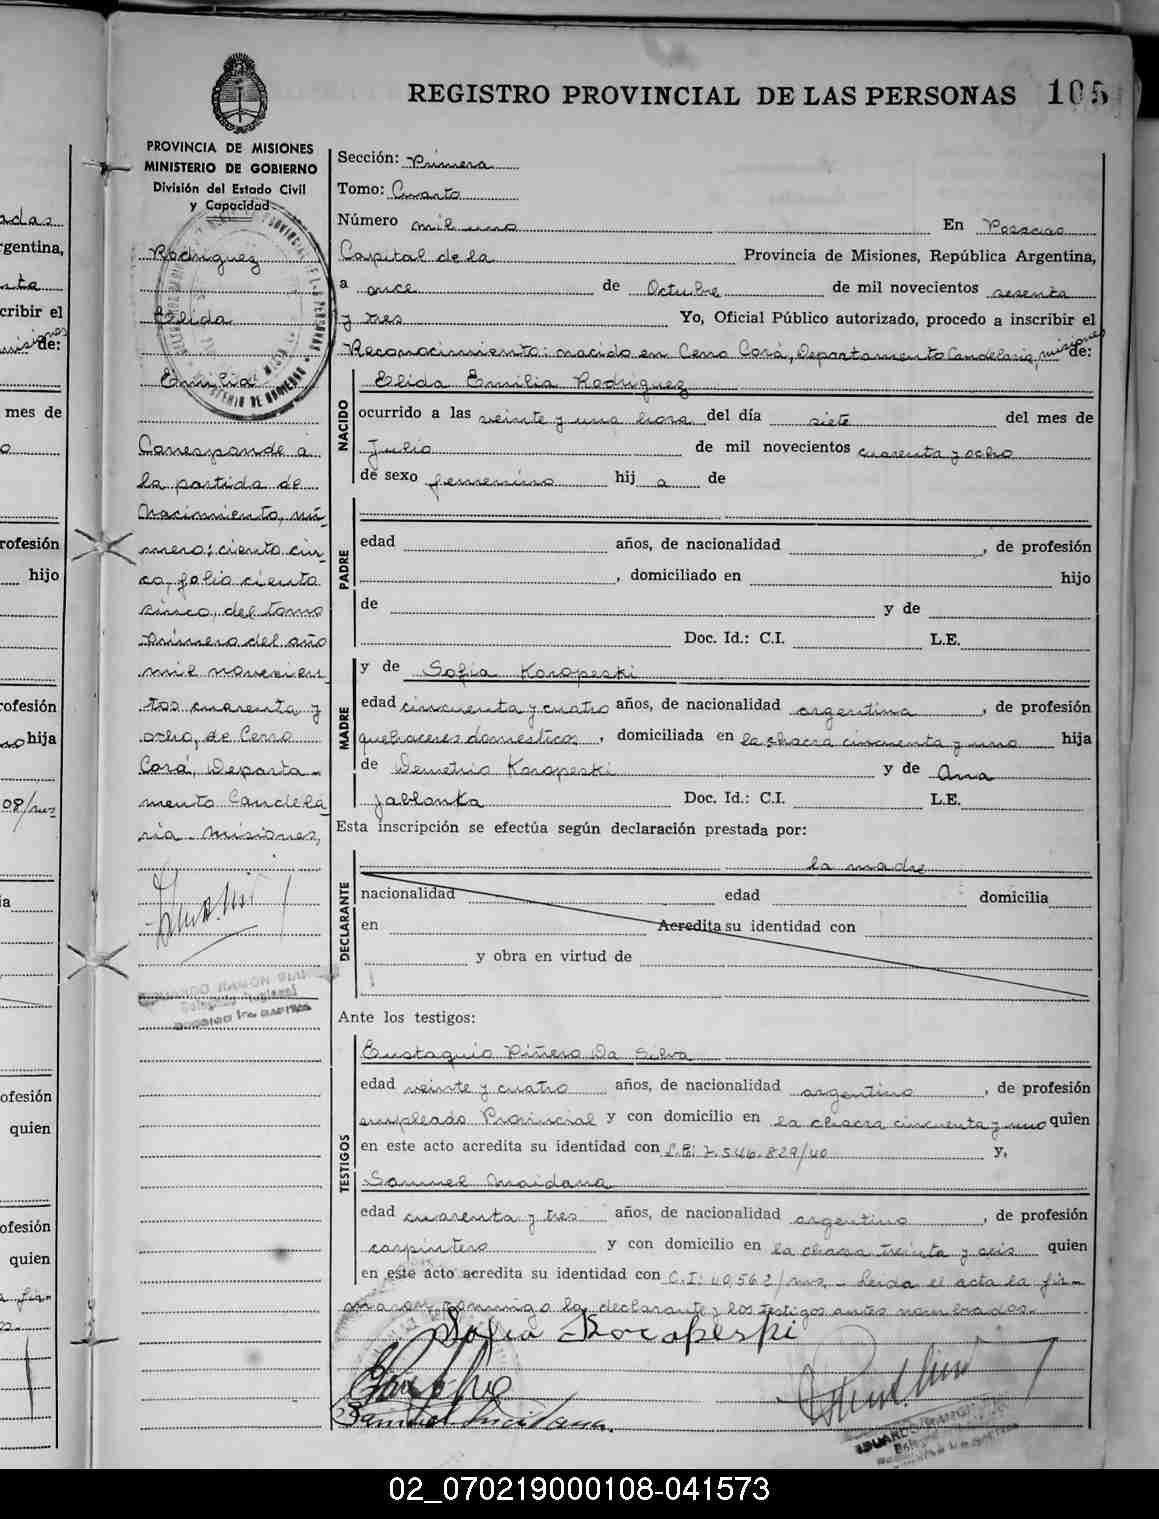 REGISTRO PROVINCIAL DE LAS PERSONAS 105
PROVINCIA DE MISIONES
MINISTERIO DE GOBIERNO
División del Estado Civil
y Capacidad
Rodriguez
Elida
Emilia
Corresponde a
la partida de
Nacimiento, nú-
mero: ciento cin
co, folio ciento
cinco, del tomo
Primero del año
mil novecien
tos cuarenta y
ocho, de Cerro
Corá, Departa-
mento Candela
ria - Misiones,
Sección: Primera
Tomo: Cuarto
Número mil uno En Posadas
Capital de la Provincia de Misiones, República Argentina,
a once de Octubre de mil novecientos sesenta
y tres Yo, Oficial Público autorizado, procedo a inscribir el
Reconocimiento: nacido en Cerro Corá, Departamento Candelaria, misiones de:
NACIDO
Elida Emilia Rodriguez
ocurrido a las veinte y una hora del día siete del mes de
Julio de mil novecientos cuarenta y ocho
de sexo femenino hij a de
PADRE
edad años, de nacionalidad , de profesión
, domiciliado en hijo
de y de
Doc. Id.: C.I. L.E.
MADRE
y de Sofia Koropeski
edad cincuenta y cuatro años, de nacionalidad argentina , de profesión
quehaceres domesticos , domiciliada en la chacra cincuenta y uno hija
de Demetrio Koropeski y de Ana
Jablonka Doc. Id.: C.I. L.E.
Esta inscripción se efectúa según declaración prestada por:
DECLARANTE
la madre
nacionalidad edad domicilia
en Acredita su identidad con
y obra en virtud de
Ante los testigos:
TESTIGOS
Eustaquio Piñero Da Silva
edad veinte y cuatro años, de nacionalidad argentino , de profesión
empleado Provincial y con domicilio en la chacra cincuenta y uno quien
en este acto acredita su identidad con 7.546.829/40 y,
Samuel Maidana
edad cuarenta y tres años, de nacionalidad argentino , de profesión
carpintero y con domicilio en la chacra treinta y seis quien
en este acto acredita su identidad con C.I: 40.562/mns - Leida el acta la fir-
maron conmigo la declarante y los testigos antes nombrados.
Sofia Korapeski
Samuel Maidana
02_070219000108-041573